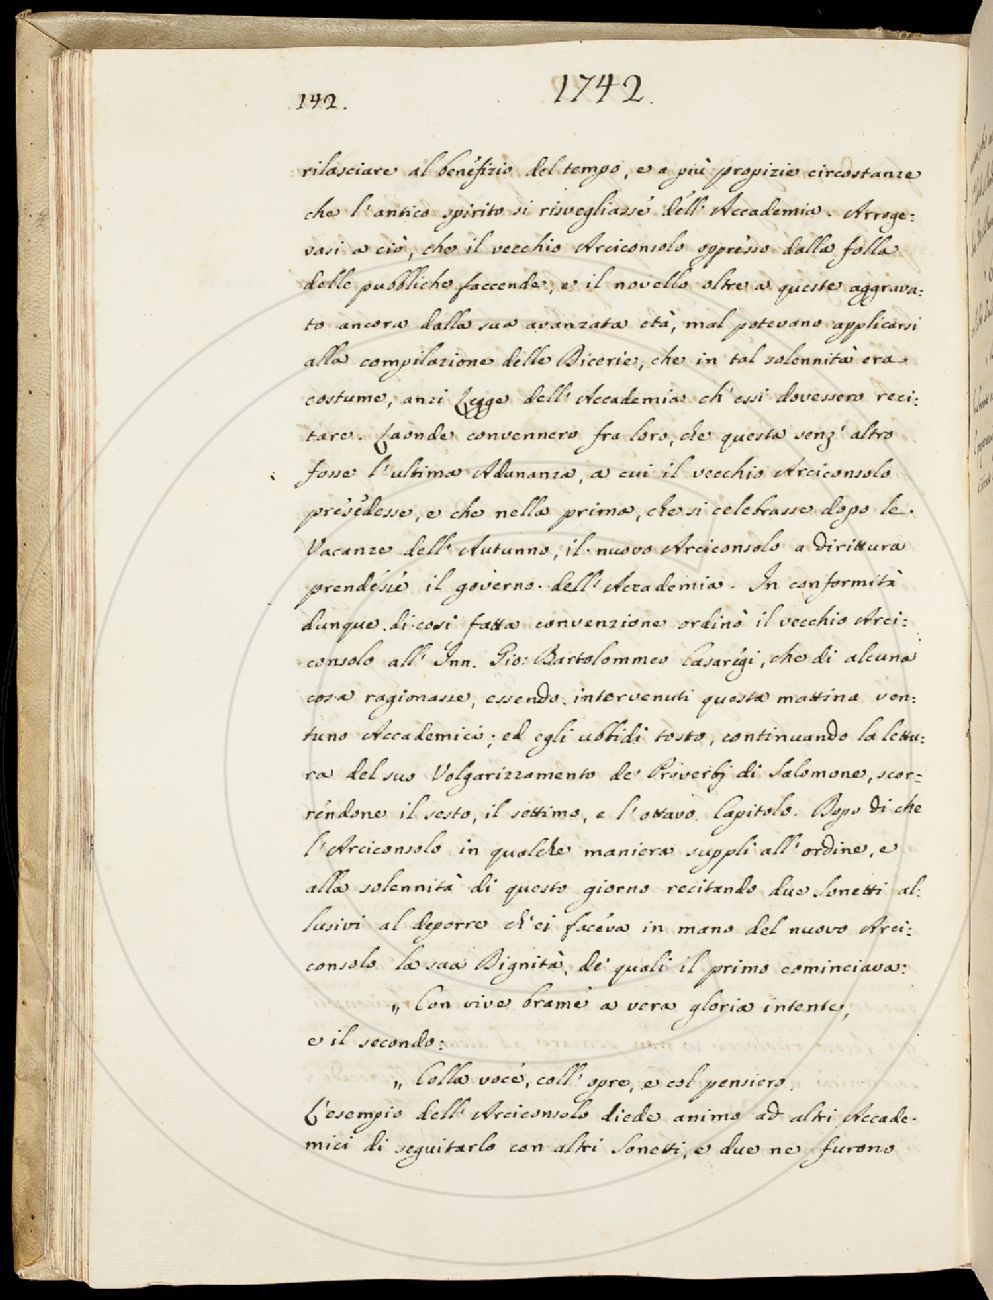 142.
1742.
rilasciare al benefizio del tempo, e a più propizie circostanze
che l'antico spirito si risvegliasse dell'Accademia. Arroge=
vasi a ciò, che il vecchio Arciconsolo oppresso dalla folla
delle pubbliche faccende, e il novello oltre a queste aggrava=
to ancora dalla sua avanzata età, mal potevano applicarsi
alla compilazione delle Dicerie, che in tal solennità era
costume, anzi Legge dell'Accademia ch'essi dovessero reci=
tare. Laonde convennero fra loro, che questa senz'altro
fosse l'ultima Adunanza, a cui il vecchio Arciconsolo
presedesse, e che nella prima, che si celebrasse dopo le
Vacanze dell'Autunno, il nuovo Arciconsolo a dirittura
prendesse il governo dell'Accademia. In conformità
dunque di così fatta convenzione ordinò il vecchio Arci=
consolo all'Inn. Gio: Bartolommeo Casaregi, che di alcuna
cosa ragionasse, essendo intervenuti questa mattina ven=
tuno Accademici; ed egli ubbidì tosto, continuando la lettu=
ra del suo Volgarizzamento de' Proverbj di Salomone, scor=
rendone il sesto, il settimo, e l'ottavo Capitolo. Dopo di che
l'Arciconsolo in qualche maniera supplì all'ordine, e
alla solennità di questo giorno recitando due Sonetti al=
lusivi al deporre ch'ei faceva in mano del nuovo Arci=
consolo la sua Dignità, de' quali il primo cominciava:
„ Con vive brame a vera gloria intente,
e il secondo:
„ Colla voce, coll'opre, e col pensiero.
L'esempio dell'Arciconsolo diede animo ad altri Accade=
mici di seguitarlo con altri Sonetti, e due ne furono